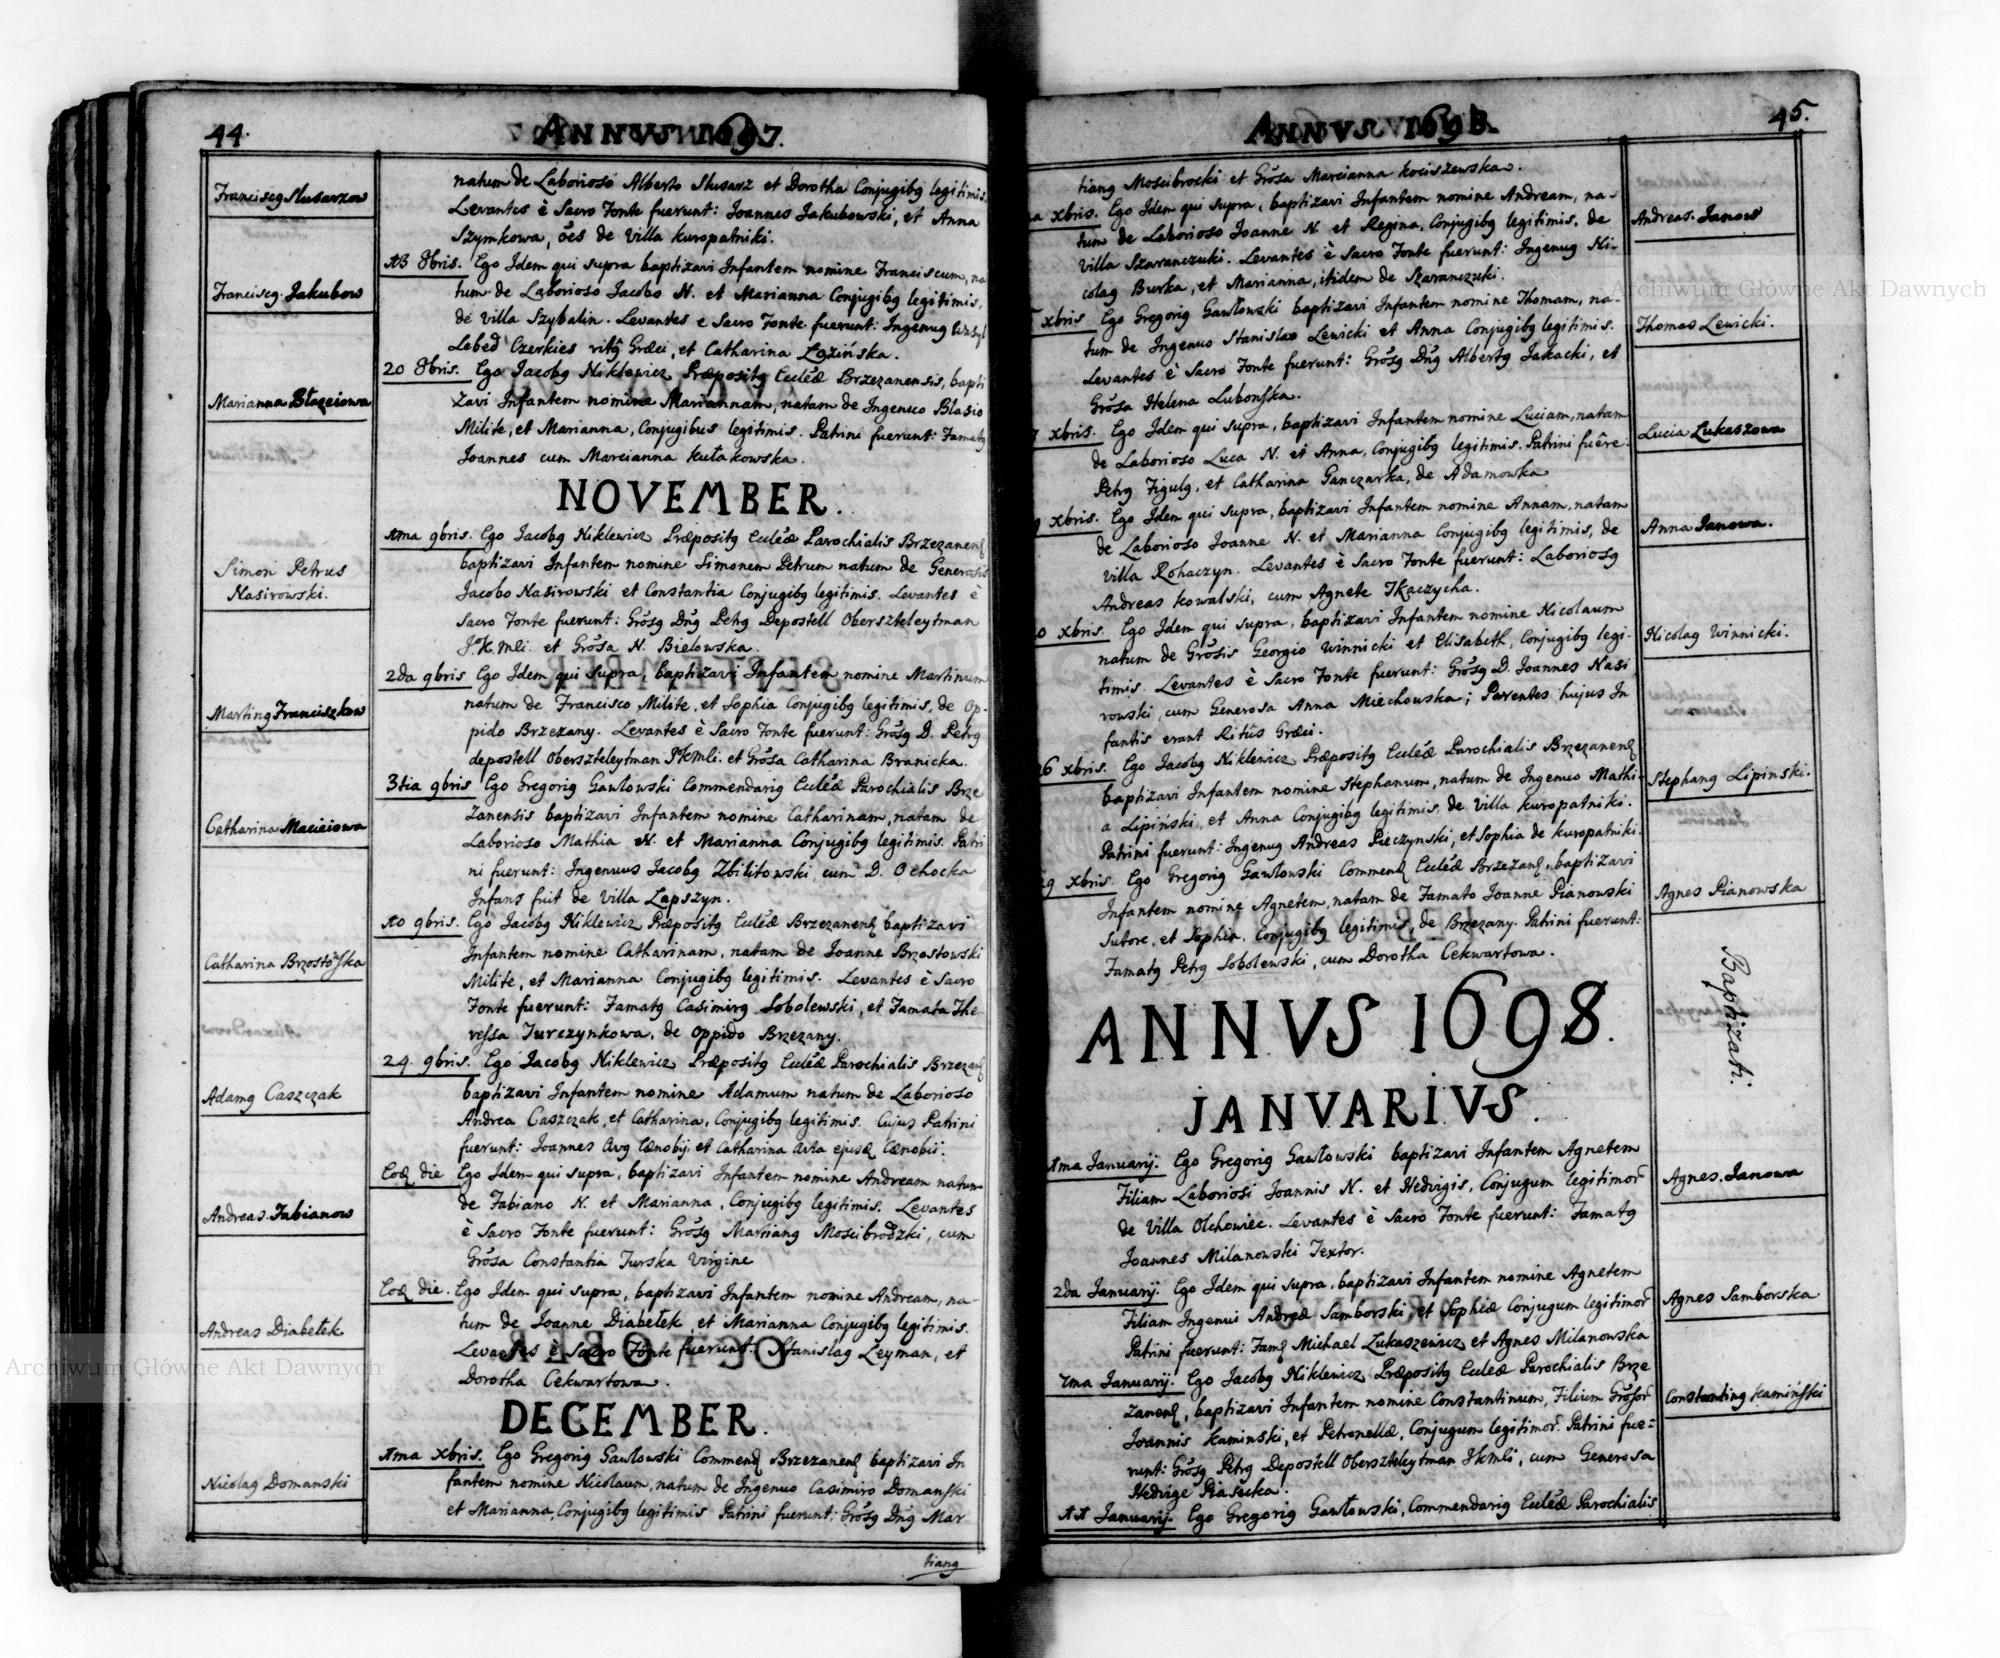 44.
ANNVS 1697.
Franciscg Slusarzow
natum de Laborioso Alberto Slusarz et Dorotha Conjugibg legitimis.
Levantes è Sacro Fonte fuerunt: Joannes Jakubowski, et Anna
Szymkowa, ões de Villa Kuropatniki.
Franciscg Jakubow
13 8bris. Ego Idem qui supra baptizavi Infantem nomine Franciscum, na
tum de Laborioso Jacobo N. et Marianna Conjugibg legitimis,
de Villa Szybalin. Levantes e Sacro Fonte fuerunt: Ingenug
Lebed Czerkies ritg Græci, et Catharina Łozińska.
Marianna Błazeiowa
20 8bris. Ego Jacobg Niklewicz Præpositg Ecclæ Brzezanensis, bapti
zavi Infantem nomine Mariannam, natam de Ingenuo Blasio
Milite, et Marianna, Conjugibus legitimis. Patrini fuerunt: Famatg
Joannes cum Marcianna Kułakowska.
NOVEMBER.
Simon Petrus
Nasirowski.
1ma 9bris. Ego Jacobg Niklewicz Præpositg Ecclæ Parochialis Brzezanen
baptizavi Infantem nomine Simonem Petrum natum de Generosis
Jacobo Nasirowski et Constantia Conjugibg legitimis. Levantes è
Sacro Fonte fuerunt: Grõsg Dñg Petrg Depostell Oberszteleytman
J.K.Mli. et Grõsa N. Bielowska.
Marting Franciszkow
2da 9bris Ego Idem qui supra, baptizavi Infantem nomine Martinum
natum de Francisco Milite, et Sophia Conjugibg legitimis, de Op-
pido Brzezany. Levantes è Sacro Fonte fuerunt: Grõsg D. Petrg
depostell Oberszteleytman JKmli. et Grõsa Catharina Branicka.
Catharina Macieiowa
3tia 9bris Ego Gregorig Gawłowski Commendarig Ecclæ Parochialis Brze
zanensis baptizavi Infantem nomine Catharinam, natam de
Laborioso Mathia N. et Marianna Conjugibg legitimis. Patri
ni fuerunt: Ingenuus Jacobg Zbilitowski cum D. Ochocka
Infans fuit de Villa Lapszyn.
Catharina Brzostowska
10 9bris. Ego Jacobg Niklewicz Præpositg Ecclæ Brzezanen baptizavi
Infantem nomine Catharinam, natam de Joanne Brzostowski
Milite, et Marianna Conjugibg legitimis. Levantes è Sacro
Fonte fuerunt: Famatg Casimirg Sobolewski, et Famata The
ressa Jurczynkowa, de Oppido Brzezany.
Adamg Caszczak
24. 9bris. Ego Jacobg Niklewicz Præpositg Ecclæ Parochialis Brzezan
baptizavi Infantem nomine Adamum natum de Laborioso
Andrea Caszczak, et Catharina, Conjugibg legitimis. Cujus Patrini
fuerunt: Joannes Avg Cænobij, et Catharina Avia ejusd Cænobii.
Andreas Fabianow
Eod die Ego Idem qui supra, baptizavi Infantem nomine Andream natum
de Fabiano N. et Marianna, Conjugibg legitimis. Levantes
è Sacro Fonte fuerunt: Grõsg Martiang Moscibrodzki, cum
Grõsa Constantia Turska Virgine
Andreas Diabełek
Eod die. Ego Idem qui supra, baptizavi Infantem nomine Andream, na-
tum de Joanne Diabełek et Marianna Conjugibg legitimis.
Levantes è Sacro Fonte fuerunt: Stanislag Leyman, et
Dorotha Cekwartowa.
DECEMBER.
Nicolag Domanski
1ma Xbris. Ego Gregorig Gawłowski Commend Brzezanen baptizavi In
fantem nomine Nicolaum, natum de Ingenuo Casimiro Domanski
et Marianna, Conjugibg legitimis Patrini fuerunt: Grõsg Dñg Mar
tiang
ANNVS 1698.
45.
tiang Moscibrocki et Grõsa Marcianna Kociszewska.
a Xbris. Ego Idem qui supra, baptizavi Infantem nomine Andream, na-
tum de Laborioso Joanne N. et Regina, Conjugibg legitimis, de
Villa Szaranczuki. Levantes è Sacro Fonte fuerunt: Ingenug Ni-
colag Burka, et Marianna, itidem de Szaranczuki.
Andreas Janow
Xbris Ego Gregorig Gawłowski baptizavi Infantem nomine Thomam, na-
tum de Ingenuo Stanislao Lewicki et Anna Conjugibg legitimis.
Levantes è Sacro Fonte fuerunt: Grõsg Dñg Albertg Jakacki, et
Grõsa Helena Lubonska.
Thomas Lewicki.
7 Xbris. Ego Idem qui supra, baptizavi Infantem nomine Luciam, natam
de Laborioso Luca N. et Anna, Conjugibg legitimis. Patrini fuêre
Petrg Figulg, et Catharina Ganczarka, de Adamowka
Lucia Lukaszowa
9 Xbris. Ego Idem qui supra, baptizavi Infantem nomine Annam, natam
de Laborioso Joanne N. et Marianna Conjugibg legitimis, de
Villa Rohaczyn. Levantes è Sacro Fonte fuerunt: Laboriosg
Andreas Kowalski, cum Agnete Tkaczycha.
Anna Janowa.
0 Xbris. Ego Idem qui supra, baptizavi Infantem nomine Nicolaum
natum de Grõsis Georgio Winnicki et Elisabeth, Conjugibg legi-
timis. Levantes è Sacro Fonte fuerunt: Grõsg D. Joannes Nasi
rowski, cum Generosa Anna Miechowska; Parentes hujus In
fantis erant Ritûs Græci.
Nicolag Winnicki.
26 Xbris. Ego Jacobg Niklewicz Præpositg Ecclæ Parochialis Brzezanen
baptizavi Infantem nomine Stephanum, natum de Ingenuo Mathi-
a Lipiński, et Anna Conjugibg legitimis, de Villa Kuropatniki.
Patrini fuerunt: Ingenug Andreas Pieczynski, et Sophia de Kuropatniki.
Stephang Lipinski.
29 Xbris. Ego Gregorig Gawłowski Commend Ecclæ Brzezan, baptizavi
Infantem nomine Agnetem, natam de Famato Joanne Pianowski
Sutore, et Sophia, Conjugibg legitimis, de Brzezany. Patrini fuerunt:
Famatg Petrg Sobolewski, cum Dorotha Cekwartowa.
Agnes Pianowska
ANNVS 1698.
Baptizati.
JANVARIVS.
1ma Januarij. Ego Gregorig Gawłowski baptizavi Infantem Agnetem
Filiam Laboriosi Joannis N. et Hedvigis, Conjugum legitimor
de Villa Olchowiec. Levantes è Sacro Fonte fuerunt: Famatg
Joannes Milanowski Textor.
Agnes Janowa
2da Januarij. Ego Idem qui supra, baptizavi Infantem nomine Agnetem
Filiam Ingenui Andreæ Samborski, et Sophiæ Conjugum legitimor
Patrini fuerunt: Fam Michael Lukaszewicz et Agnes Milanowska
Agnes Samborska
7ma Januarij. Ego Jacobg Niklewicz Præpositg Ecclæ Parochialis Brze
zanen, baptizavi Infantem nomine Constantinum, Filium Grõsor
Joannis Kaminski, et Petronellæ, Conjugum legitimor. Patrini fue=
runt: Grõsg Petrg Depostell Oberszteleytman JKmli, cum Generosa
Hedvige Piasecka.
Constanting Kamiński
11 Januarij. Ego Gregorig Gawłowski, Commendarig Ecclæ Parochialis
Archiwum Główne Akt Dawnych
Archiwum Główne Akt Dawnych